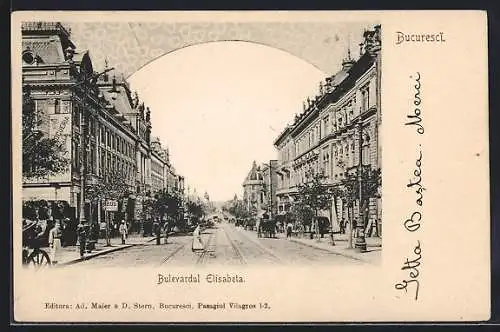 Bucurescĭ.
Bulevardul Elisabeta.
Getta Bastea. Merci
Editora: Ad. Maier & D. Stern, Bucuresci, Pasagiul Vilagros 1-2.